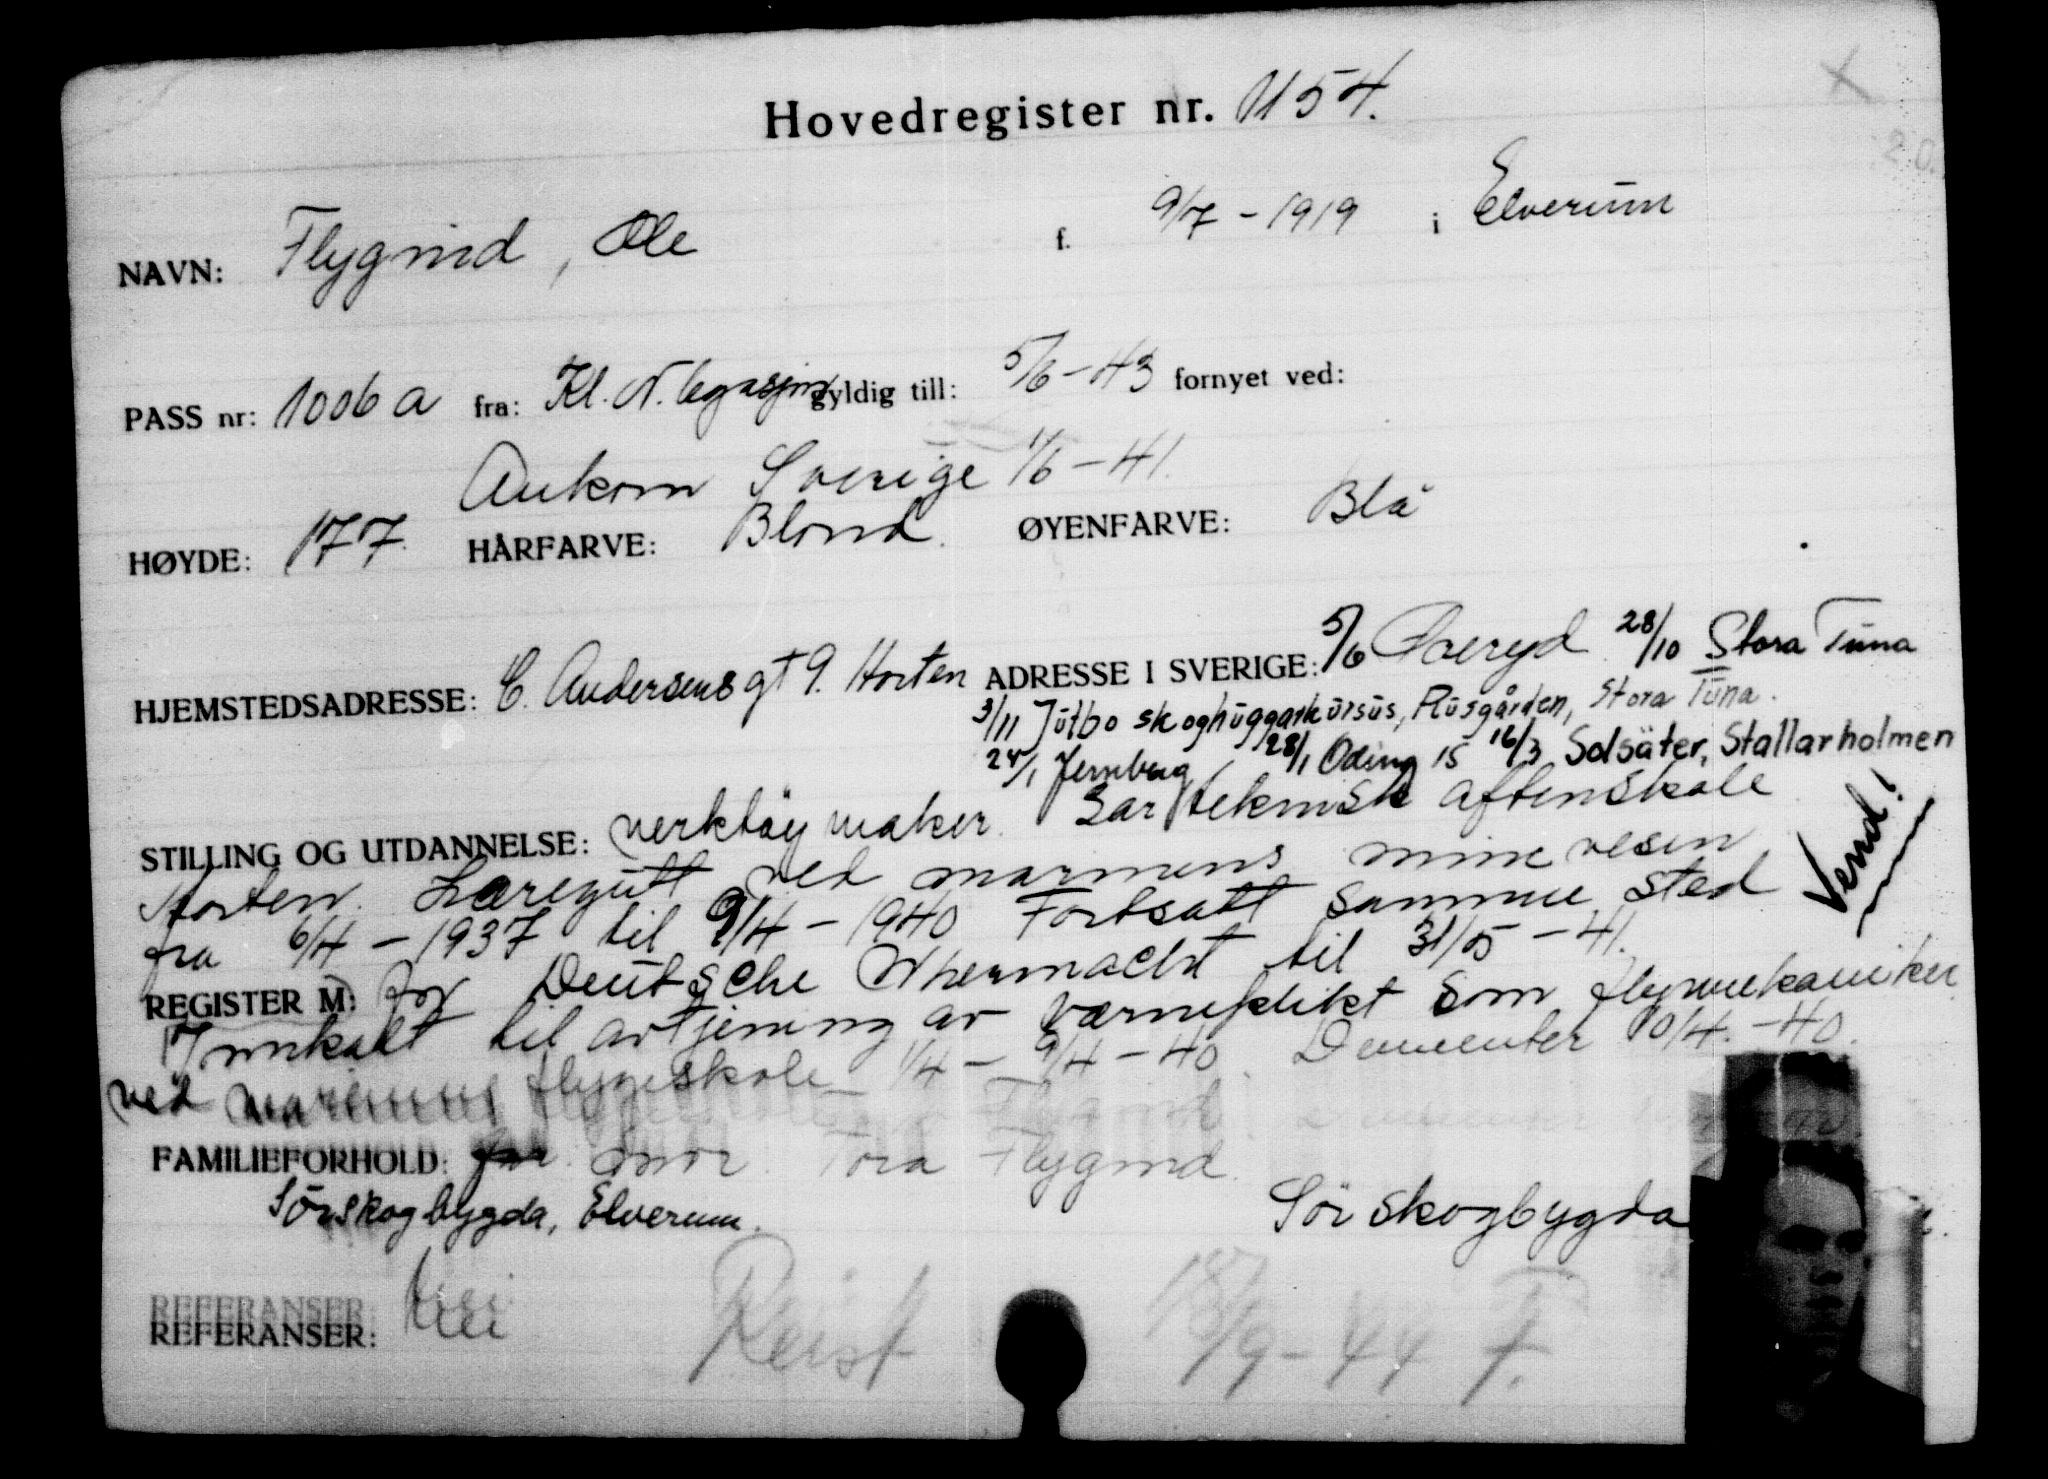 Hovedregister nr. 1154.
NAVN: Flygind, Ole f. 9/7 - 1919 i Elverum
PASS nr: 1006 a fra: Kl. N. legasjon gyldig till: 5/6 - 43 fornyet ved:
Ankom Sverige 1/6 - 41.
HØYDE: 177. HÅRFARVE: Blond. ØYENFARVE: Blå
HJEMSTEDSADRESSE: C. Andersens gt 9. Horten ADRESSE I SVERIGE: 5/6 Øreryd 28/10 Stora Tuna
3/11 Jutbo skoghuggarkursus, Rusgården, Stora Tuna.
24/1 Jernberg, 28/1 Oding 15 16/3 Solsäter, Stallarholmen
STILLING OG UTDANNELSE: verktøy maker. 3 år teknisk aftenskole
Horten. Læregutt ved marinens minevesen
fra 6/4 - 1937 til 9/4 - 1940 Fortsatt samme sted
for Deutsche Whermacht til 31/5 - 41.
REGISTER M: Innkalt til avtjening av værneplikt som flymekaniker
ved marinens flyveskole 1/4 - 9/4 - 40. Dementer 10/4. - 40.
FAMILIEFORHOLD: mor Tora Flygind
Sørskogbygda, Elverum. Sør skogbygda
REFERANSER: Nei
REFERANSER:
Reist 18/9 - 44 F.
Vend!